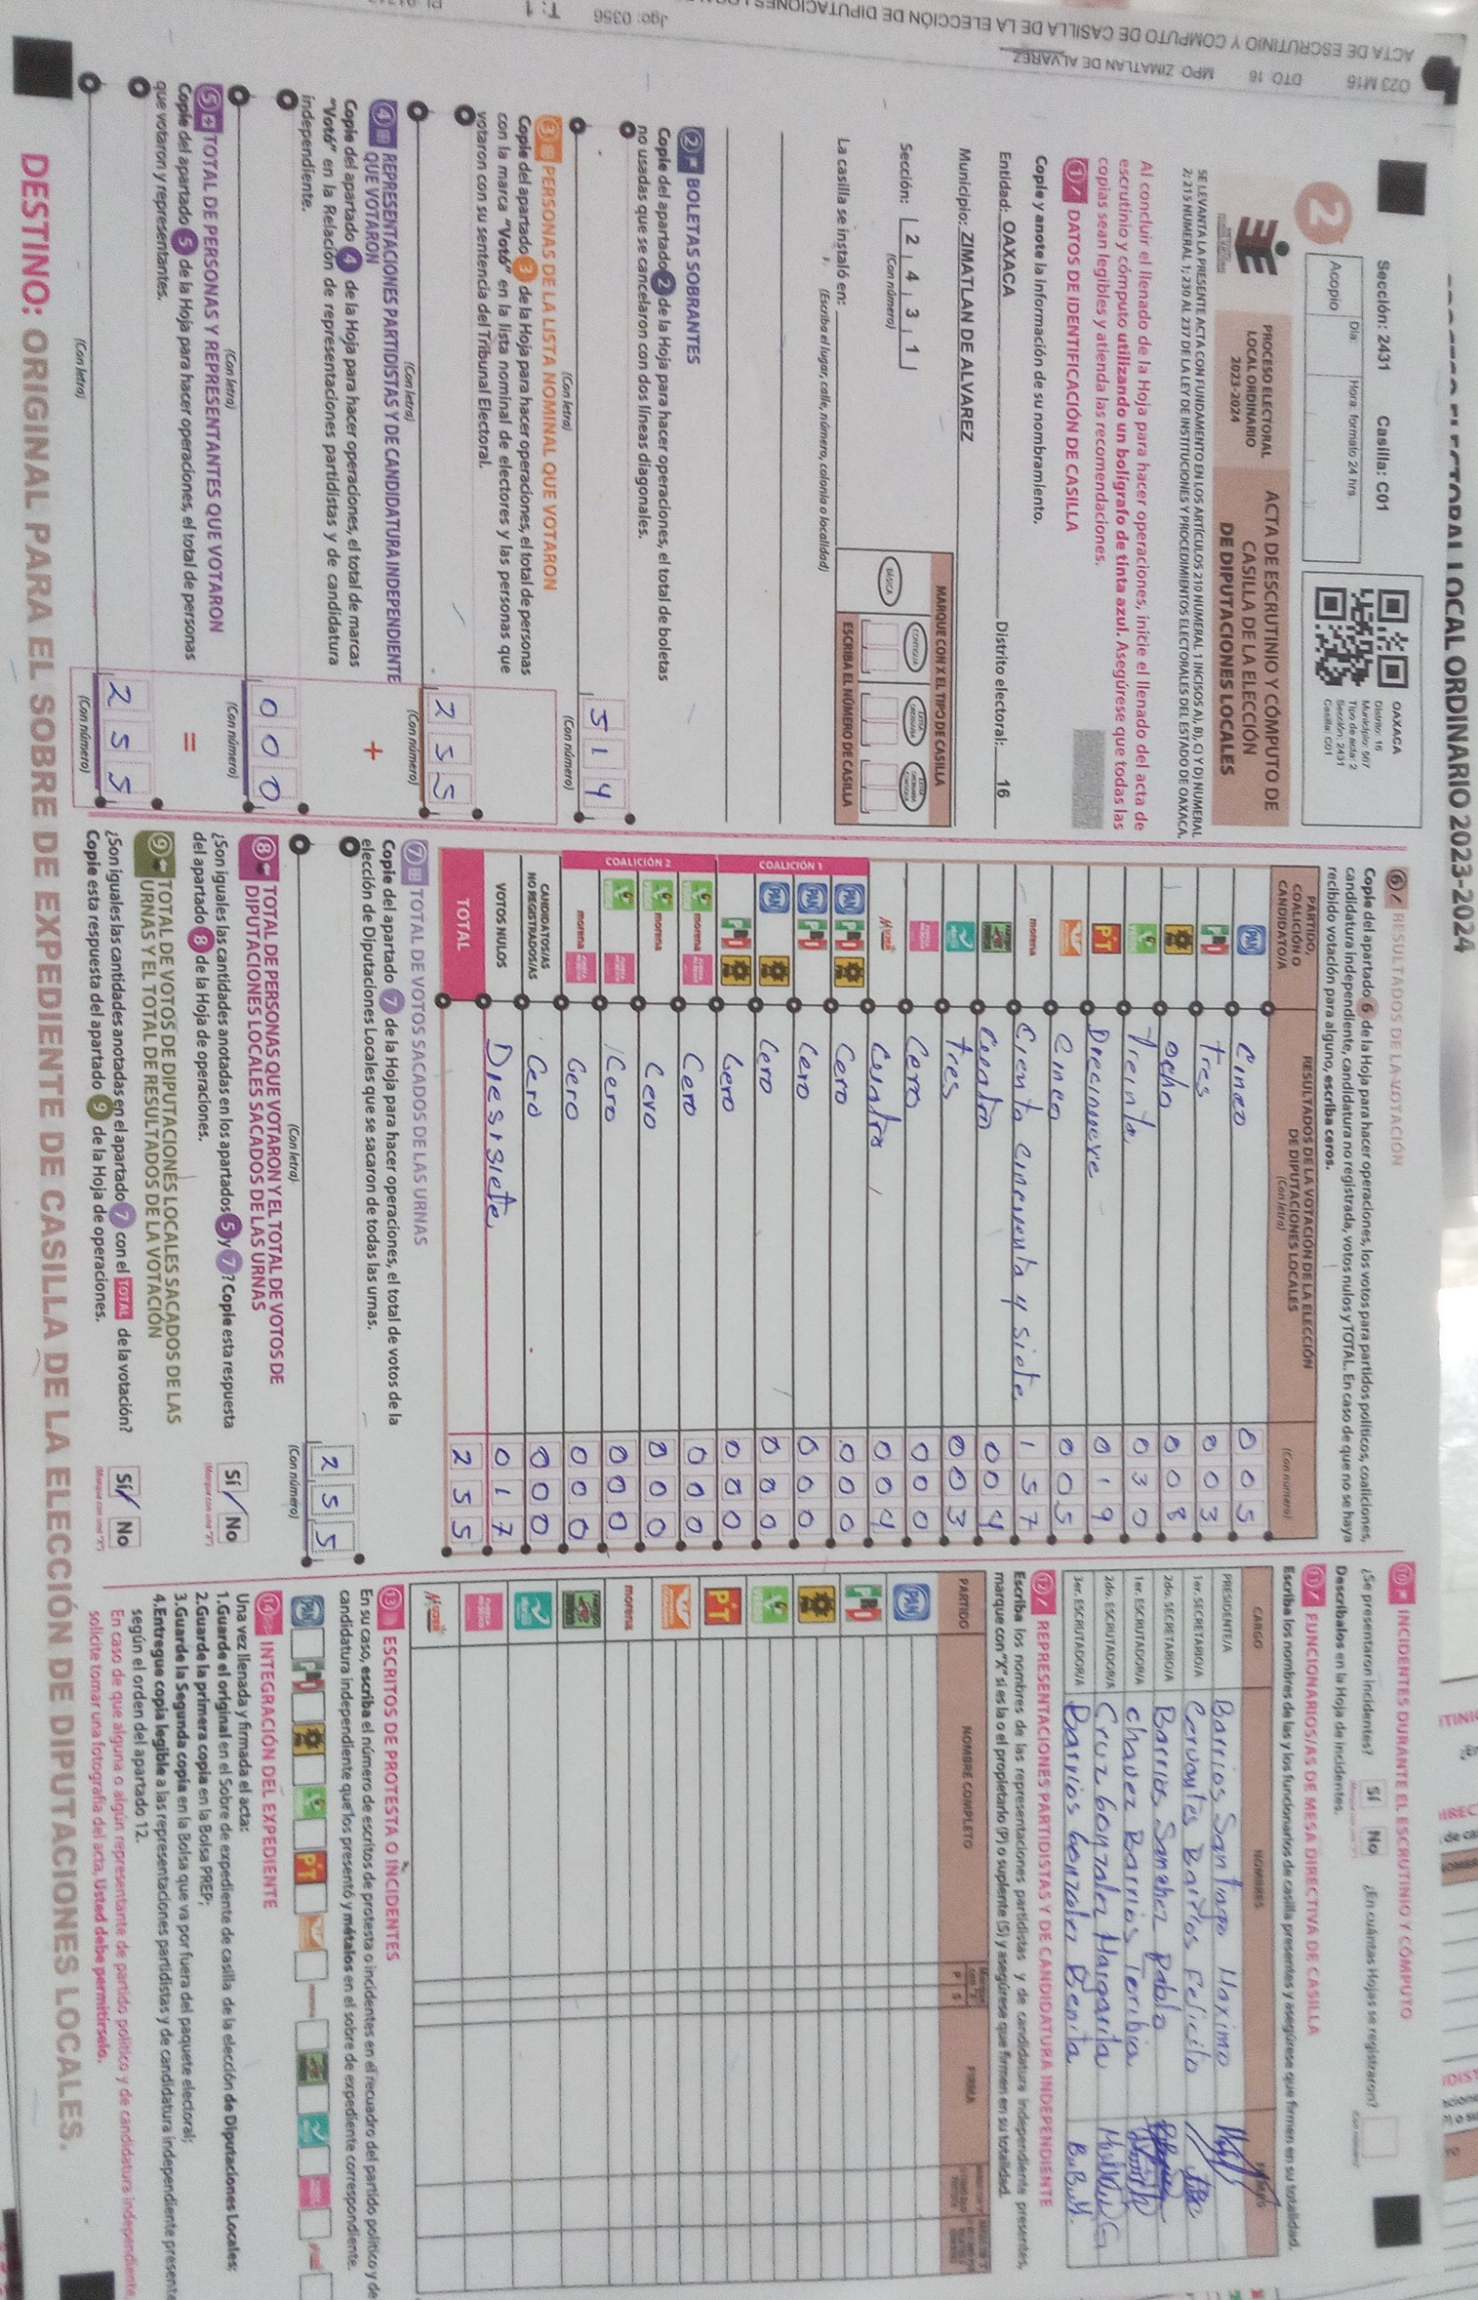 PROCESO ELECTORAL LOCAL ORDINARIO 2023-2024
Sección: 2431 Casilla: C01
2
Acopio
Día:
Hora: formato 24 hrs
OAXACA
Distrito: 16
Municipio: 567
Tipo de acta: 2
Sección: 2431
Casilla: C01
PROCESO ELECTORAL
LOCAL ORDINARIO
2023-2024
ACTA DE ESCRUTINIO Y CÓMPUTO DE
CASILLA DE LA ELECCIÓN
DE DIPUTACIONES LOCALES
SE LEVANTA LA PRESENTE ACTA CON FUNDAMENTO EN LOS ARTÍCULOS 210 NUMERAL 1 INCISOS A), B), C) Y D) NUMERAL
2; 215 NUMERAL 1; 230 AL 237 DE LA LEY DE INSTITUCIONES Y PROCEDIMIENTOS ELECTORALES DEL ESTADO DE OAXACA.
Al concluir el llenado de la Hoja para hacer operaciones, inicie el llenado del acta de
escrutinio y cómputo utilizando un bolígrafo de tinta azul. Asegúrese que todas las
copias sean legibles y atienda las recomendaciones.
1 DATOS DE IDENTIFICACIÓN DE CASILLA
Copie y anote la información de su nombramiento.
Entidad: OAXACA Distrito electoral: 16
Municipio: ZIMATLAN DE ALVAREZ
Sección: 2 4 3 1
(Con número)
MARQUE CON X EL TIPO DE CASILLA
BÁSICA
CONTIGUA
ESCRIBA EL NÚMERO DE CASILLA
La casilla se instaló en:
(Escriba el lugar, calle, número, colonia o localidad)
2 BOLETAS SOBRANTES
Copie del apartado 2 de la Hoja para hacer operaciones, el total de boletas
no usadas que se cancelaron con dos líneas diagonales.
514
(Con letra) (Con número)
3 PERSONAS DE LA LISTA NOMINAL QUE VOTARON
Copie del apartado 3 de la Hoja para hacer operaciones, el total de personas
con la marca "Votó" en la lista nominal de electores y las personas que
votaron con su sentencia del Tribunal Electoral.
255
(Con letra) (Con número)
4 REPRESENTACIONES PARTIDISTAS Y DE CANDIDATURA INDEPENDIENTE
QUE VOTARON
+
Copie del apartado 4 de la Hoja para hacer operaciones, el total de marcas
"Votó" en la Relación de representaciones partidistas y de candidatura
independiente.
000
(Con letra) (Con número)
5 TOTAL DE PERSONAS Y REPRESENTANTES QUE VOTARON
=
Copie del apartado 5 de la Hoja para hacer operaciones, el total de personas
que votaron y representantes.
255
(Con letra) (Con número)
6 RESULTADOS DE LA VOTACIÓN
Copie del apartado 6 de la Hoja para hacer operaciones, los votos para partidos políticos, coaliciones,
candidatura independiente, candidatura no registrada, votos nulos y TOTAL. En caso de que no se haya
recibido votación para alguno, escriba ceros.
PARTIDO,
COALICIÓN O
CANDIDATO/A
RESULTADOS DE LA VOTACIÓN DE LA ELECCIÓN
DE DIPUTACIONES LOCALES
(Con letra)
(Con número)
PAN Cinco 005
PRD tres 003
ocho 008
Treinta 030
PT Diecinueve 019
Cinco 005
morena Ciento Cincuenta y siete 157
Cuatro 004
tres 003
Cero 000
Cuatro 004
COALICIÓN 1
PAN PRD Cero 000
PAN PRD Cero 000
PAN Cero 000
PRD Cero 000
COALICIÓN 2
morena Cero 000
morena Cero 000
Cero 000
morena Cero 000
CANDIDATOS/AS
NO REGISTRADOS/AS Cero 000
VOTOS NULOS Diesisiete 017
TOTAL 255
7 TOTAL DE VOTOS SACADOS DE LAS URNAS
Copie del apartado 7 de la Hoja para hacer operaciones, el total de votos de la
elección de Diputaciones Locales que se sacaron de todas las urnas.
255
(Con letra) (Con número)
8 TOTAL DE PERSONAS QUE VOTARON Y EL TOTAL DE VOTOS DE
DIPUTACIONES LOCALES SACADOS DE LAS URNAS
¿Son iguales las cantidades anotadas en los apartados 5 y 7? Copie esta respuesta
del apartado 8 de la Hoja de operaciones.
Sí No
9 TOTAL DE VOTOS DE DIPUTACIONES LOCALES SACADOS DE LAS
URNAS Y EL TOTAL DE RESULTADOS DE LA VOTACIÓN
¿Son iguales las cantidades anotadas en el apartado 7 con el TOTAL de la votación?
Copie esta respuesta del apartado 9 de la Hoja de operaciones.
Sí No
10 INCIDENTES DURANTE EL ESCRUTINIO Y CÓMPUTO
¿Se presentaron incidentes? Sí No ¿En cuántas Hojas se registraron?
Descríbalos en la Hoja de incidentes.
11 FUNCIONARIOS/AS DE MESA DIRECTIVA DE CASILLA
Escriba los nombres de las y los funcionarios de casilla presentes y asegúrese que firmen en su totalidad.
CARGO NOMBRES
PRESIDENTE/A Barrios Santiago Maximo
1er. SECRETARIO/A Cervantes Barrios Felicito
2do. SECRETARIO/A Barrios Sanchez Pablo
1er. ESCRUTADOR/A chavez Barrios Toribia
2do. ESCRUTADOR/A Cruz Gonzalez Margarita
3er. ESCRUTADOR/A Barrios Gonzalez Benita
12 REPRESENTACIONES PARTIDISTAS Y DE CANDIDATURA INDEPENDIENTE
Escriba los nombres de las representaciones partidistas y de candidatura independiente presentes,
marque con "X" si es la o el propietario (P) o suplente (S) y asegúrese que firmen en su totalidad.
PARTIDO NOMBRE COMPLETO P S FIRMA
PAN
PRD
PT
morena
13 ESCRITOS DE PROTESTA O INCIDENTES
En su caso, escriba el número de escritos de protesta o incidentes en el recuadro del partido político y de
candidatura independiente que los presentó y métalos en el sobre de expediente correspondiente.
PAN PRD PT
14 INTEGRACIÓN DEL EXPEDIENTE
Una vez llenada y firmada el acta:
1.Guarde el original en el Sobre de expediente de casilla de la elección de Diputaciones Locales;
2.Guarde la primera copia en la Bolsa PREP;
3.Guarde la Segunda copia en la Bolsa que va por fuera del paquete electoral;
4.Entregue copia legible a las representaciones partidistas y de candidatura independiente present
según el orden del apartado 12.
En caso de que alguna o algún representante de partido político y de candidatura independiente
solicite tomar una fotografía del acta, Usted debe permitírselo.
DESTINO: ORIGINAL PARA EL SOBRE DE EXPEDIENTE DE CASILLA DE LA ELECCIÓN DE DIPUTACIONES LOCALES.
023 M16 DTO 16 MPO ZIMATLAN DE ALVAREZ
ACTA DE ESCRUTINIO Y COMPUTO DE CASILLA DE LA ELECCIÓN DE DIPUTACIONES
Jgo: 0356 T: 1